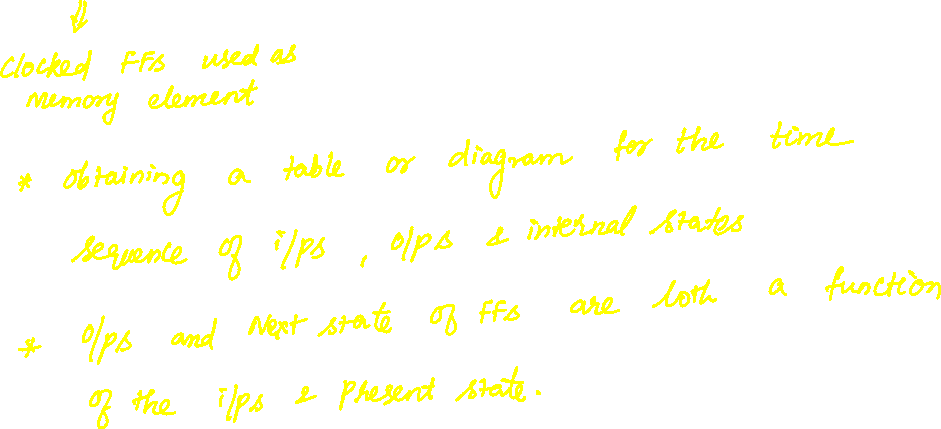 Clocked FFs used as
Memory element
* Obtaining a table or diagram for the time
sequence of i/ps, o/ps & internal states
* O/ps and Next state of FFs are both a function
of the i/ps & Present state.